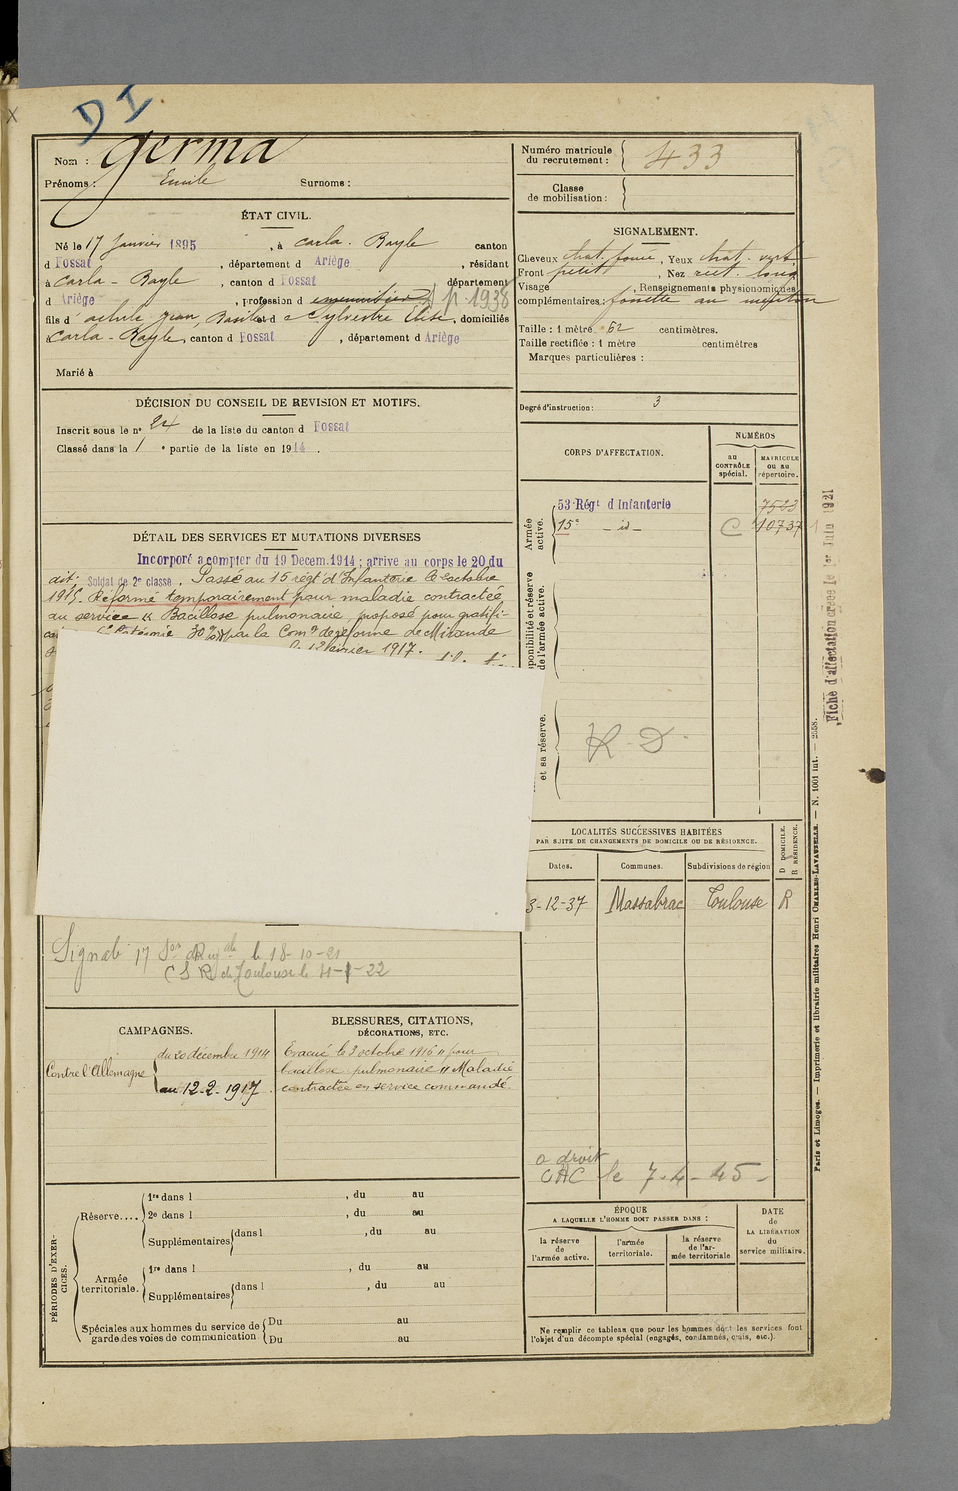 D I
Nom : Germa
Prénoms : Emile Surnoms :
Numéro matricule du recrutement : 433
Classe de mobilisation :
ÉTAT CIVIL.
Né le 17 Janvier 1895, à Carla-Bayle canton
d Fossat, département d Ariège, résidant
à Carla-Bayle, canton d Fossat département
d Ariège, profession d p. 1938
fils d Jean, Basile et d Sylvestre Elise, domiciliés
à Carla-Bayle, canton d Fossat, département d Ariège
Marié à
SIGNALEMENT.
Cheveux chat. foncé, Yeux chat. vert
Front petit, Nez rect. long
Visage , Renseignements physionomiques
complémentaires : fossette au menton
Taille : 1 mètre 62 centimètres.
Taille rectifiée : 1 mètre centimètres
Marques particulières :
Degré d'instruction : 3
DÉCISION DU CONSEIL DE REVISION ET MOTIFS.
Inscrit sous le n° 24 de la liste du canton d Fossat
Classé dans la 1 e partie de la liste en 1914.
CORPS D'AFFECTATION.
NUMÉROS
au CONTRÔLE spécial.
MATRICULE ou au répertoire.
Armée active.
53e Régt d'Infanterie 7523
15e - id - C 10737
Disponibilité et réserve de l'armée active.
et sa réserve.
R. D.
Fiche d'affectation créée le 1er Juin 1921
DÉTAIL DES SERVICES ET MUTATIONS DIVERSES
Incorporé a compter du 19 Decem. 1914 ; arrive au corps le 20 du
dit. Soldat de 2e classe. Passé au 15 régt d'Infanterie le octobre
1915. Réformé temporairement pour maladie contractée
au service « Bacillose pulmonaire, proposé pour gratifi-
30% par la Comon de réforme de Mirande
février 1917.
Signalé 17 Son d'Rég le 18-10-21
C S R de Toulouse le 4-1-22
LOCALITÉS SUCCESSIVES HABITÉES
PAR SUITE DE CHANGEMENTS DE DOMICILE OU DE RÉSIDENCE.
Dates. Communes. Subdivisions de région
D DOMICILE. R RÉSIDENCE.
3-12-37 Massabrac Toulouse R
a droit
CAC le 7-4-45-
CAMPAGNES.
Contre l'Allemagne
du 20 décembre 1914
au 12-2-1917
BLESSURES, CITATIONS,
DÉCORATIONS, ETC.
Evacué le 3 octobre 1916 " pour
bacillose pulmonaire " Maladie
contractée en service commandé.
PÉRIODES D'EXERCICES.
Réserve....
1re dans l , du au
2e dans l , du au
Supplémentaires dans l , du au
Armée territoriale.
1re dans l , du au
Supplémentaires dans l , du au
Spéciales aux hommes du service de garde des voies de communication
Du au
Du au
ÉPOQUE
A LAQUELLE L'HOMME DOIT PASSER DANS :
la réserve de l'armée active.
l'armée territoriale.
la réserve de l'armée territoriale
DATE de LA LIBÉRATION du service militaire.
Ne remplir ce tableau que pour les hommes dont les services font
l'objet d'un décompte spécial (engagés, condamnés, omis, etc.).
Paris et Limoges. — Imprimerie et librairie militaires Henri CHARLES-LAVAUZELLE. — N. 1001 int. — 2558.